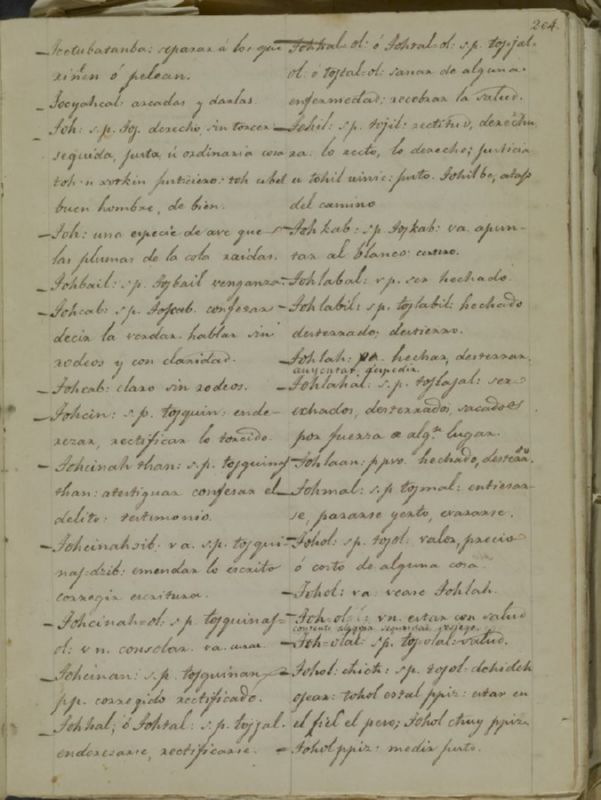 204.
Tootubatanba: separar á los que
riñen ó pelean.
Tooyahcal: arcadas y darlas
Toh: s.p. Toj. derecho, sin torcer
seguida, justa ú ordinaria cosa
toh u xotkin justiciero: toh
buen hombre, de bien.
Toh: una especie de ave que
las plumas de la cola raidas.
Tohbail: s.p. Tojbail venganza.
Tohcab: s.p. Tojcab. confesar
decir la verdad. hablar sin
rodeos y con claridad.
Tohcab: claro sin rodeos.
Tohcin: s.p. tojquin: ende-
rezar, rectificar lo torcido.
Tohcinah than: s.p. tojquinaj
than: atestiguar confesar el
delito: testimonio.
Tohcinahdib: va. s.p. tojqui-
naj-dzib: emendar lo escrito
corregir escritura.
Tohcinah-ol: s.p. tojquinaj-
ol: vn. consolar. va.
Tohcinan: s.p. tojquinan
pp. corregido rectificado.
Tohhal; ó Tohtal: s.p. tojjal.
enderesarse, rectificarse.
Tohhal-ol: ó Tohtal-ol: s.p. tojjal-
ol: ó tojtal-ol: sanar de alguna
enfermedad; recobrar la salud.
Tohil: s.p. tojil: rectitud, derechu
ra: lo recto, lo derecho; justicia
u tohil uinic: justo. Tohilbe, atajo
del camino
Tohkab: s.p. Tojkab: va. apun-
tar al blanco:
Tohlabal: vp. ser hechado.
Tohlabil: s.p. tojlabil: hechado
desterrado; destierro.
Tohlah: va. hechar, desterrar,
auyentar, despedir.
Tohlahal: s.p. tojlajal: ser
echados, desterrados, sacados
por fuerza de algn. lugar.
Tohlaan: ppvo. hechado, desterrado.
Tohmal: s.p. tojmal: entiesar-
se, pararse yerto,
Tohol: s.p. tojol: valor, precio
ó costo de alguna cosa.
Tohol: va: vease Tohlah.
Toh-ol: vn. estar con salud
contento alegre seguridad
Toh-olal: s.p. toj-olal: salud.
Tohol chich: s.p. tojol
ojear: tohol estal ppiz: estar en
el fiel el peso; Tohol chuy ppiz
Tohol ppiz: medir justo.